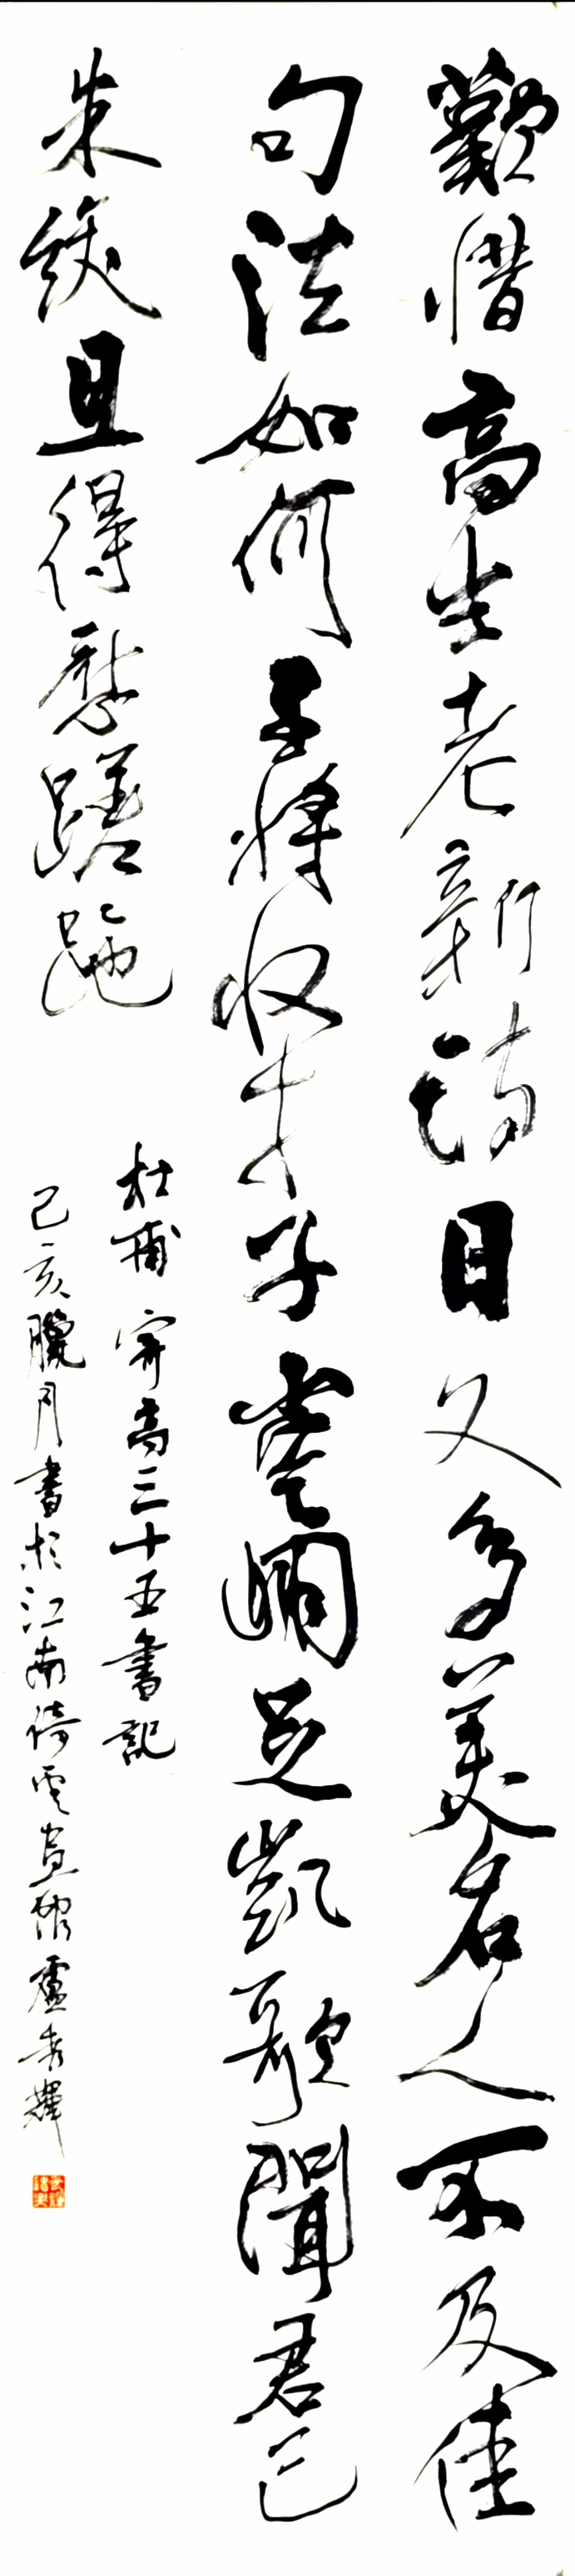 歎惜高生老新詩日又多美名人不及佳
句法如何主將收才子崆峒足凱歌聞君已
朱紱且得慰蹉跎
杜甫寄高三十五書記
己亥臘月書於江南倚雲畫館盧秀輝